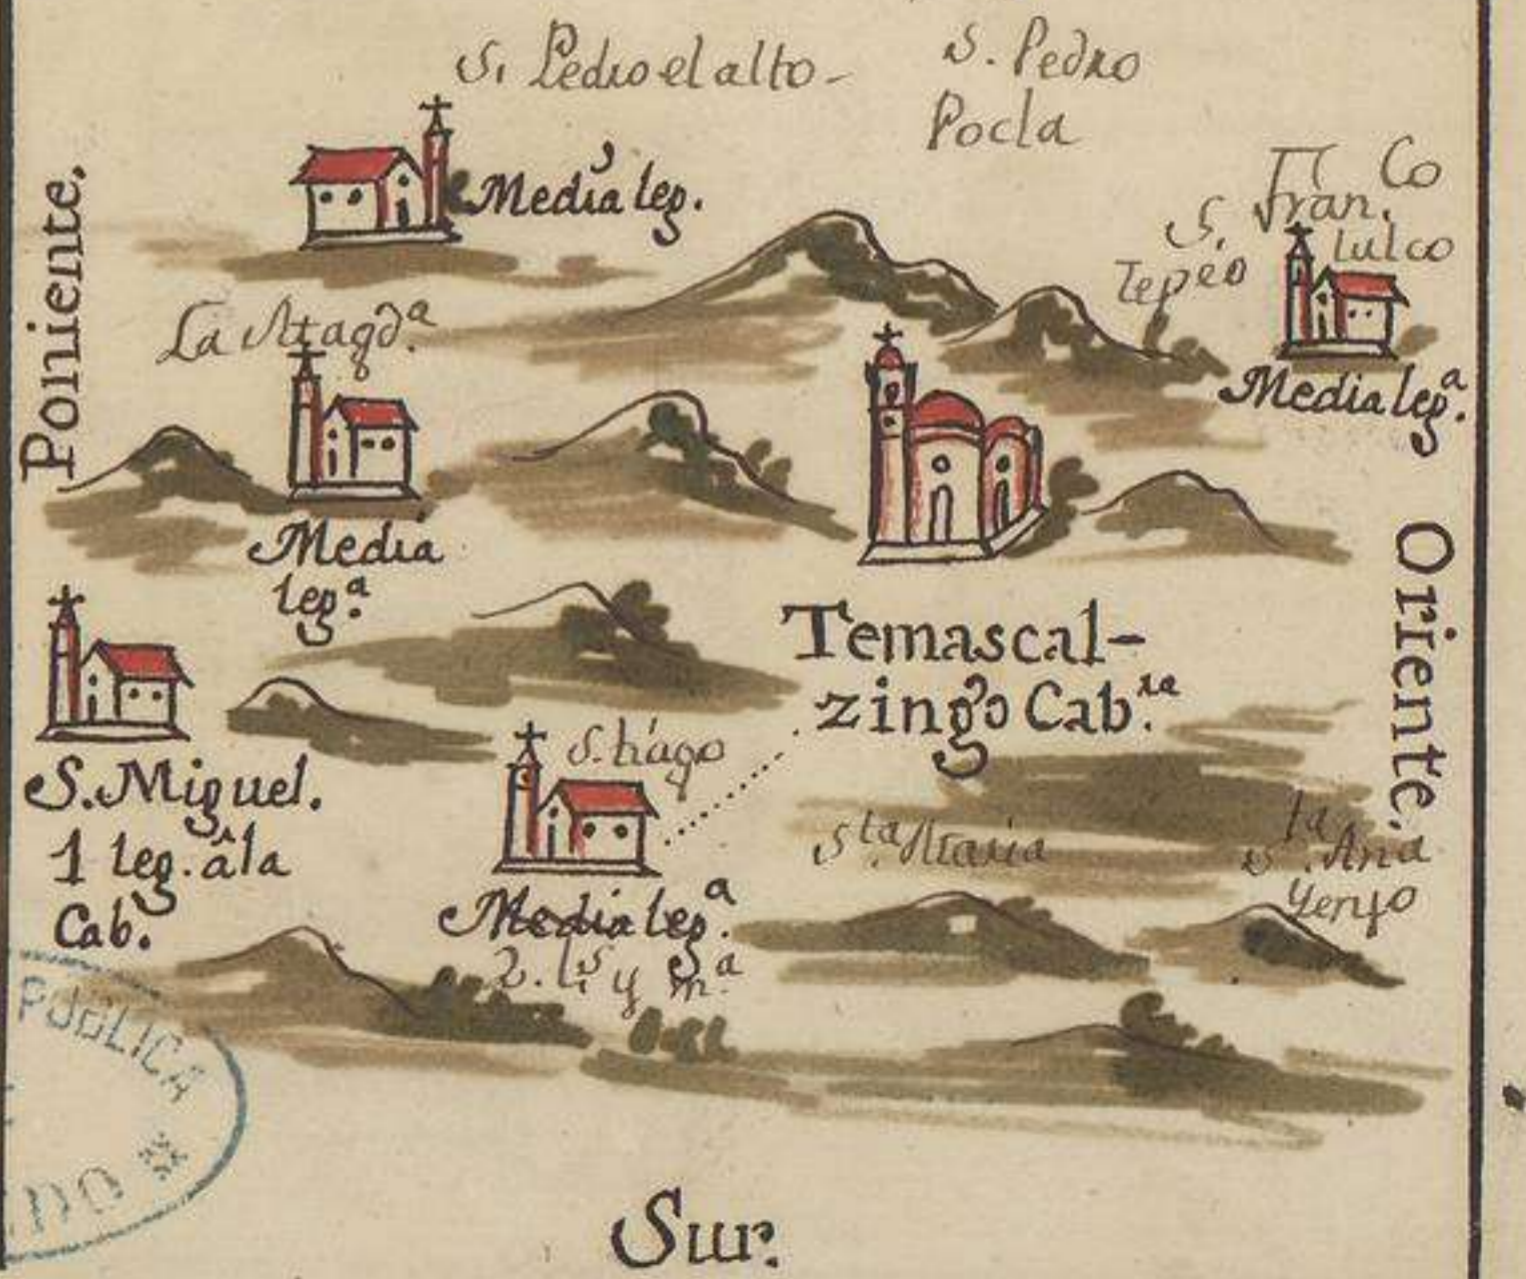 S. Pedro el alto
S. Pedro
Pocla
Media leg.
Poniente.
S. Fran.co
Tepeo lulco
Media leg.a
La Magd.a
Media
leg.a
Oriente.
Temascal-
zingo Cab.ra
S. Miguel.
1 leg. â la
Cab.
S. tiago
Media leg.a
2. l.s y m.a
Sta. Maria
Sta. Ana
Yenso
PUBLICA
Sur.